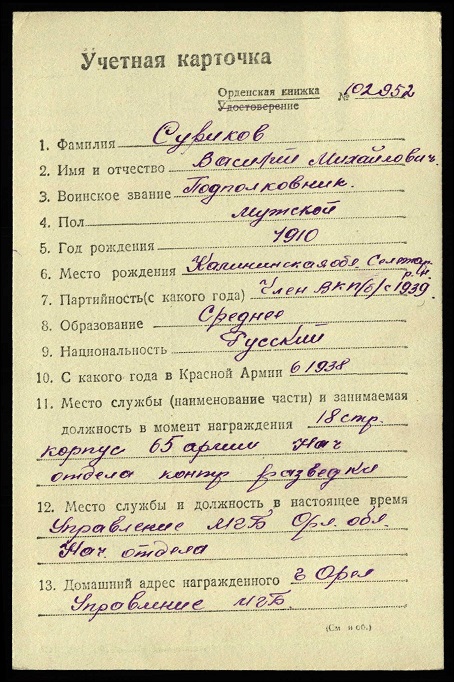 Учетная карточка
Орденская книжка
Удостоверение № 102952
1. Фамилия Сувиков
2. Имя и отчество Василий Михайлович.
3. Воинское звание Подполковник.
4. Пол Мужской
5. Год рождения 1910
6. Место рождения Калининская обл Селижар.
р-н.
7. Партийность(с какого года) Член ВКП/б/с 1939.
8. Образование Среднее
9. Национальность Русский
10. С какого года в Красной Армии с 1938
11. Место службы (наименование части) и занимаемая
должность в момент награждения 18 стр.
корпус 65 армии Нач
отдела контр разведки
12. Место службы и должность в настоящее время
Управление МГБ Орл. обл.
Нач отдела
13. Домашний адрес награжденного г Орел
Управление МГБ.
(См н об.)